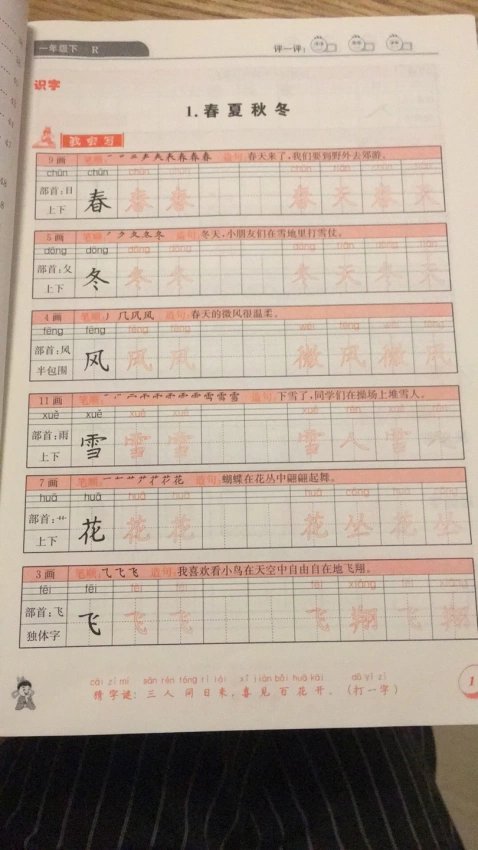 一年级下 R 评一评：
识字
1. 春 夏 秋 冬
我会写
9 画 笔顺： 造句：春天来了，我们要到野外去郊游。
chūn chūn chūn chūn chūn tiān chūn tiān
部首：日 春 春 春 春 天 春 天
上下
5 画 笔顺： 造句：冬天，小朋友们在雪地里打雪仗。
dōng dōng dōng dōng dōng tiān dōng tiān
部首：夂 冬 冬 冬 冬 天 冬 天
上下
4 画 笔顺： 造句：春天的微风很温柔。
fēng fēng fēng fēng wēi fēng wēi fēng
部首：风 风 风 风 微 风 微 风
半包围
11 画 笔顺： 造句：下雪了，同学们在操场上堆雪人。
xuě xuě xuě xuě xuě rén xuě rén
部首：雨 雪 雪 雪 雪 人 雪 人
上下
7 画 笔顺： 造句：蝴蝶在花丛中翩翩起舞。
huā huā huā huā huā cóng huā cóng
部首：艹 花 花 花 花 丛 花 丛
上下
3 画 笔顺： 造句：我喜欢看小鸟在天空中自由自在地飞翔。
fēi fēi fēi fēi fēi xiáng fēi xiáng
部首：飞 飞 飞 飞 飞 翔 飞 翔
独体字
cāi zì mí sān rén tóng rì lái xǐ jiàn bǎi huā kāi dǎ yí zì
猜字谜：三人同日来，喜见百花开。（打一字）
1